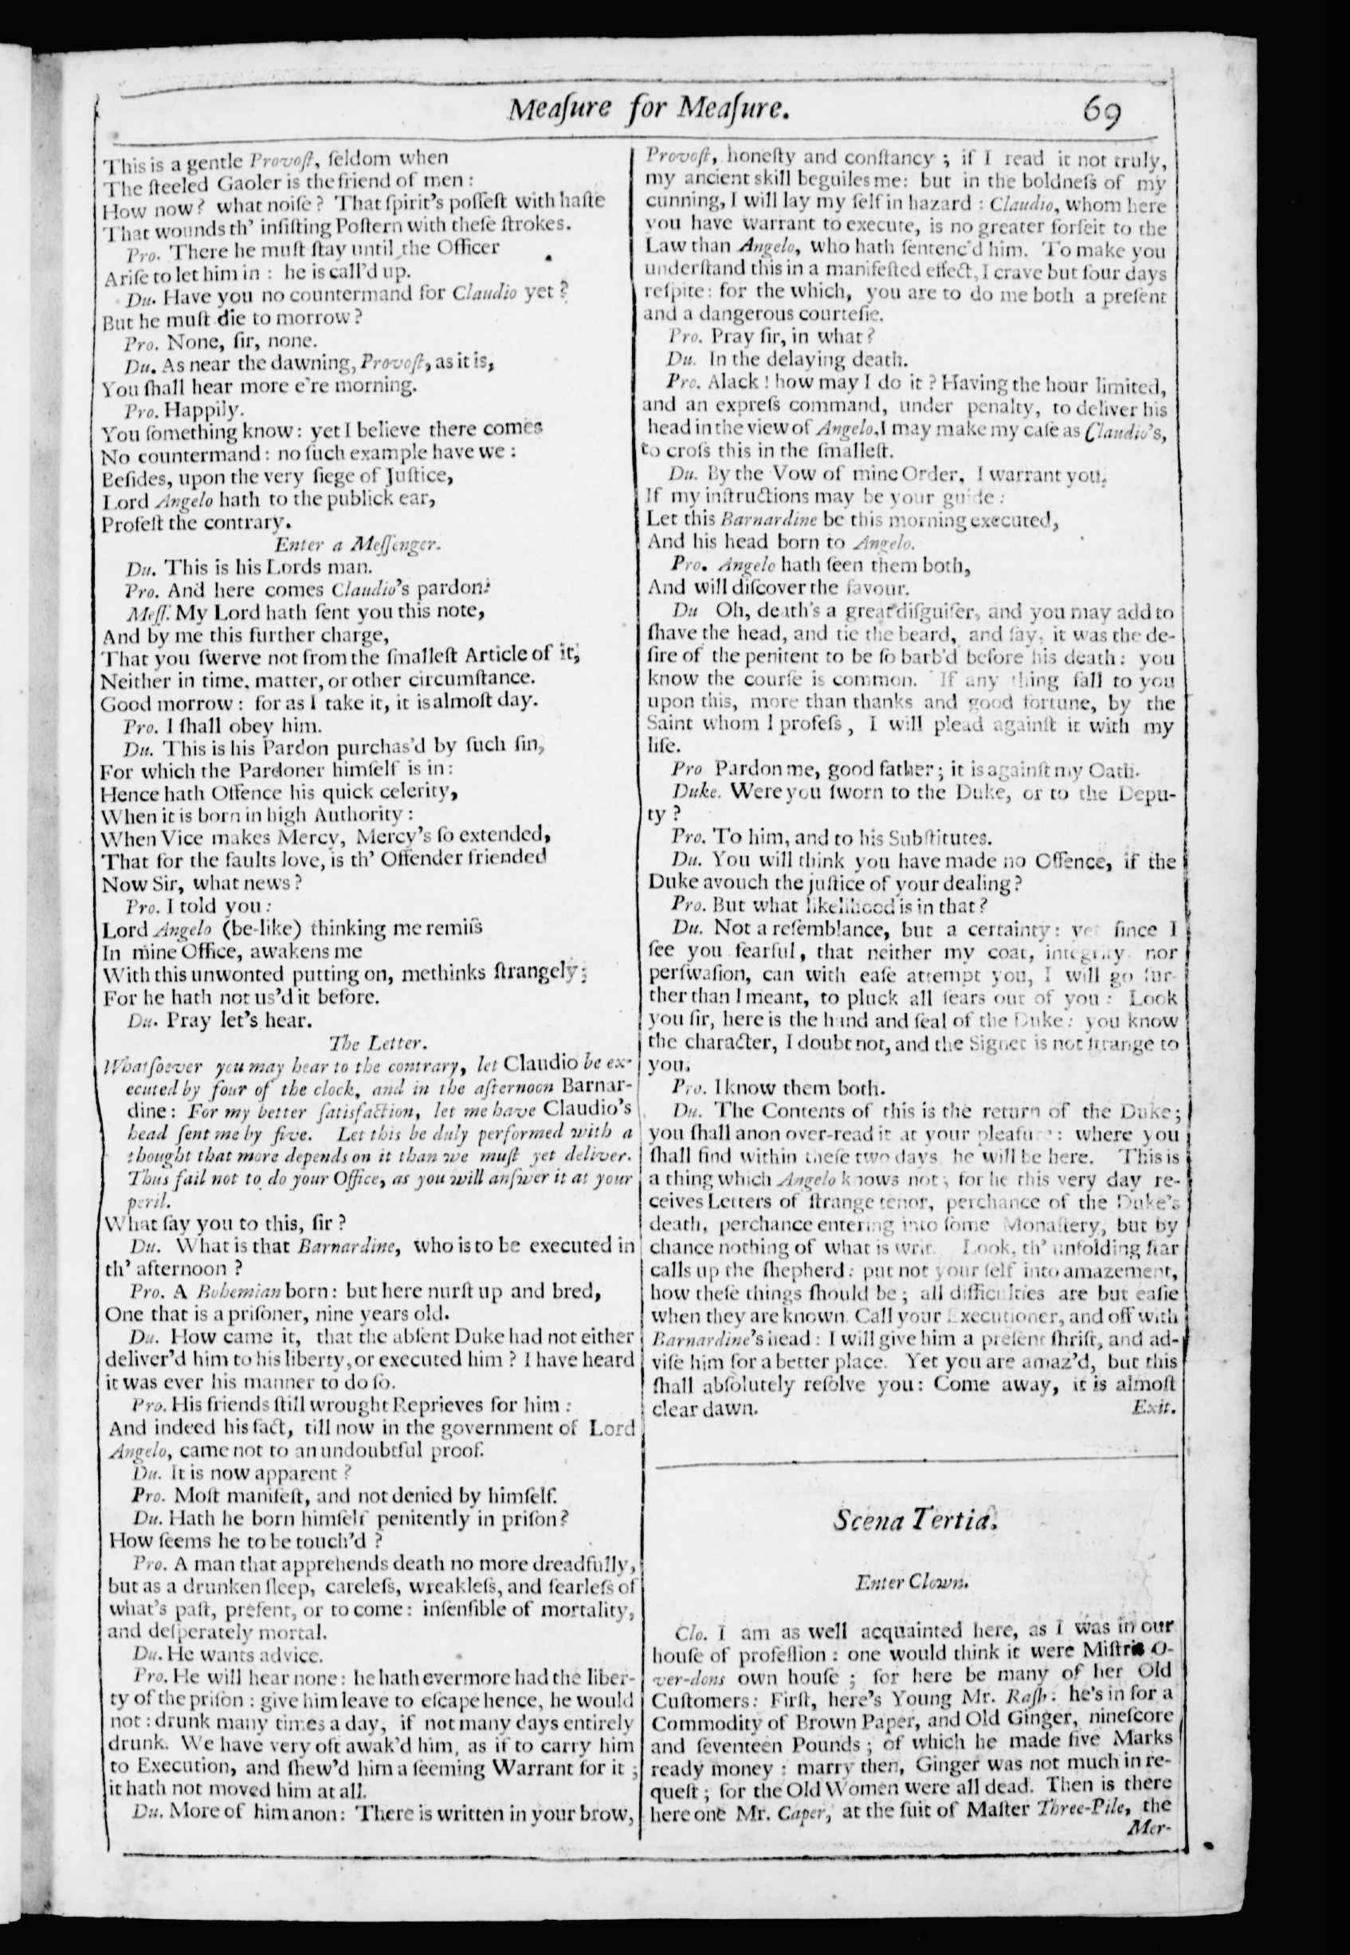 Meaſure for Meaſure. 69
This is a gentle Provoſt, ſeldom when
The ſteeled Gaoler is the friend of men:
How now? what noiſe? That ſpirit's poſſeſt with haſte
That wounds th' inſiſting Poſtern with theſe ſtrokes.
Pro. There he muſt ſtay until the Officer
Ariſe to let him in: he is call'd up.
Du. Have you no countermand for Claudio yet?
But he muſt die to morrow?
Pro. None, ſir, none.
Du. As near the dawning, Provoſt, as it is,
You ſhall hear more e're morning.
Pro. Happily.
You ſomething know: yet I believe there comes
No countermand: no ſuch example have we:
Beſides, upon the very ſiege of Juſtice,
Lord Angelo hath to the publick ear,
Profeſt the contrary.
Enter a Meſſenger.
Du. This is his Lords man.
Pro. And here comes Claudio's pardon:
Meſſ. My Lord hath ſent you this note,
And by me this further charge,
That you ſwerve not from the ſmalleſt Article of it;
Neither in time, matter, or other circumſtance.
Good morrow: for as I take it, it is almoſt day.
Pro. I ſhall obey him.
Du. This is his Pardon purchas'd by ſuch ſin,
For which the Pardoner himſelf is in:
Hence hath Offence his quick celerity,
When it is born in high Authority:
When Vice makes Mercy, Mercy's ſo extended,
That for the faults love, is th' Offender friended
Now Sir, what news?
Pro. I told you:
Lord Angelo (be-like) thinking me remiſs
In mine Office, awakens me
With this unwonted putting on, methinks ſtrangely;
For he hath not us'd it before.
Du. Pray let's hear.
The Letter.
Whatſoever you may hear to the contrary, let Claudio be ex-
ecuted by four of the clock, and in the afternoon Barnar-
dine: For my better ſatisfaction, let me have Claudio's
head ſent me by five. Let this be duly performed with a
thought that more depends on it than we muſt yet deliver.
Thus fail not to do your Office, as you will anſwer it at your
peril.
What ſay you to this, ſir?
Du. What is that Barnardine, who is to be executed in
th' afternoon?
Pro. A Bohemian born: but here nurſt up and bred,
One that is a priſoner, nine years old.
Du. How came it, that the abſent Duke had not either
deliver'd him to his liberty, or executed him? I have heard
it was ever his manner to do ſo.
Pro. His friends ſtill wrought Reprieves for him:
And indeed his fact, till now in the government of Lord
Angelo, came not to an undoubtful proof.
Du. It is now apparent?
Pro. Moſt manifeſt, and not denied by himſelf.
Du. Hath he born himſelf penitently in priſon?
How ſeems he to be touch'd?
Pro. A man that apprehends death no more dreadfully,
but as a drunken ſleep, careleſs, wreakleſs, and fearleſs of
what's paſt, preſent, or to come: inſenſible of mortality,
and deſperately mortal.
Du. He wants advice.
Pro. He will hear none: he hath evermore had the liber-
ty of the priſon: give him leave to eſcape hence, he would
not: drunk many times a day, if not many days entirely
drunk. We have very oft awak'd him, as if to carry him
to Execution, and ſhew'd him a ſeeming Warrant for it;
it hath not moved him at all.
Du. More of him anon: There is written in your brow,
Provoſt, honeſty and conſtancy; if I read it not truly,
my ancient skill beguiles me: but in the boldneſs of my
cunning, I will lay my ſelf in hazard: Claudio, whom here
you have warrant to execute, is no greater forfeit to the
Law than Angelo, who hath ſentenc'd him. To make you
underſtand this in a manifeſted effect, I crave but four days
reſpite: for the which, you are to do me both a preſent
and a dangerous courteſie.
Pro. Pray ſir, in what?
Du. In the delaying death.
Pro. Alack! how may I do it? Having the hour limited,
and an expreſs command, under penalty, to deliver his
head in the view of Angelo, I may make my caſe as Claudio's,
to croſs this in the ſmalleſt.
Du. By the Vow of mine Order, I warrant you,
If my inſtructions may be your guide:
Let this Barnardine be this morning executed,
And his head born to Angelo.
Pro. Angelo hath ſeen them both,
And will diſcover the favour.
Du Oh, death's a great diſguiſer, and you may add to
ſhave the head, and tie the beard, and ſay, it was the de-
ſire of the penitent to be ſo barb'd before his death: you
know the courſe is common. If any thing fall to you
upon this, more than thanks and good fortune, by the
Saint whom I profeſs, I will plead againſt it with my
life.
Pro Pardon me, good father; it is againſt my Oath.
Duke. Were you ſworn to the Duke, or to the Depu-
ty?
Pro. To him, and to his Subſtitutes.
Du. You will think you have made no Offence, if the
Duke avouch the juſtice of your dealing?
Pro. But what likelihood is in that?
Du. Not a reſemblance, but a certainty: yet ſince I
ſee you fearful, that neither my coat, integrity nor
perſwaſion, can with eaſe attempt you, I will go fur-
ther than I meant, to pluck all fears out of you: Look
you ſir, here is the hand and ſeal of the Duke: you know
the character, I doubt not, and the Signet is not ſtrange to
you.
Pro. I know them both.
Du. The Contents of this is the return of the Duke;
you ſhall anon over-read it at your pleaſure: where you
ſhall find within theſe two days he will be here. This is
a thing which Angelo knows not; for he this very day re-
ceives Letters of ſtrange tenor, perchance of the Duke's
death, perchance entering into ſome Monaſtery, but by
chance nothing of what is writ. Look, th' unfolding ſtar
calls up the ſhepherd: put not your ſelf into amazement,
how theſe things ſhould be; all difficulties are but eaſie
when they are known. Call your Executioner, and off with
Barnardine's head: I will give him a preſent ſhrift, and ad-
viſe him for a better place. Yet you are amaz'd, but this
ſhall abſolutely reſolve you: Come away, it is almoſt
clear dawn. Exit.
Scena Tertia.
Enter Clown.
Clo. I am as well acquainted here, as I was in our
houſe of profeſſion: one would think it were Miſtris O-
ver-dons own houſe; for here be many of her Old
Cuſtomers: Firſt, here's Young Mr. Raſh: he's in for a
Commodity of Brown Paper, and Old Ginger, nineſcore
and ſeventeen Pounds; of which he made five Marks
ready money: marry then, Ginger was not much in re-
queſt; for the Old Women were all dead. Then is there
here one Mr. Caper, at the ſuit of Maſter Three-Pile, the
Mer-